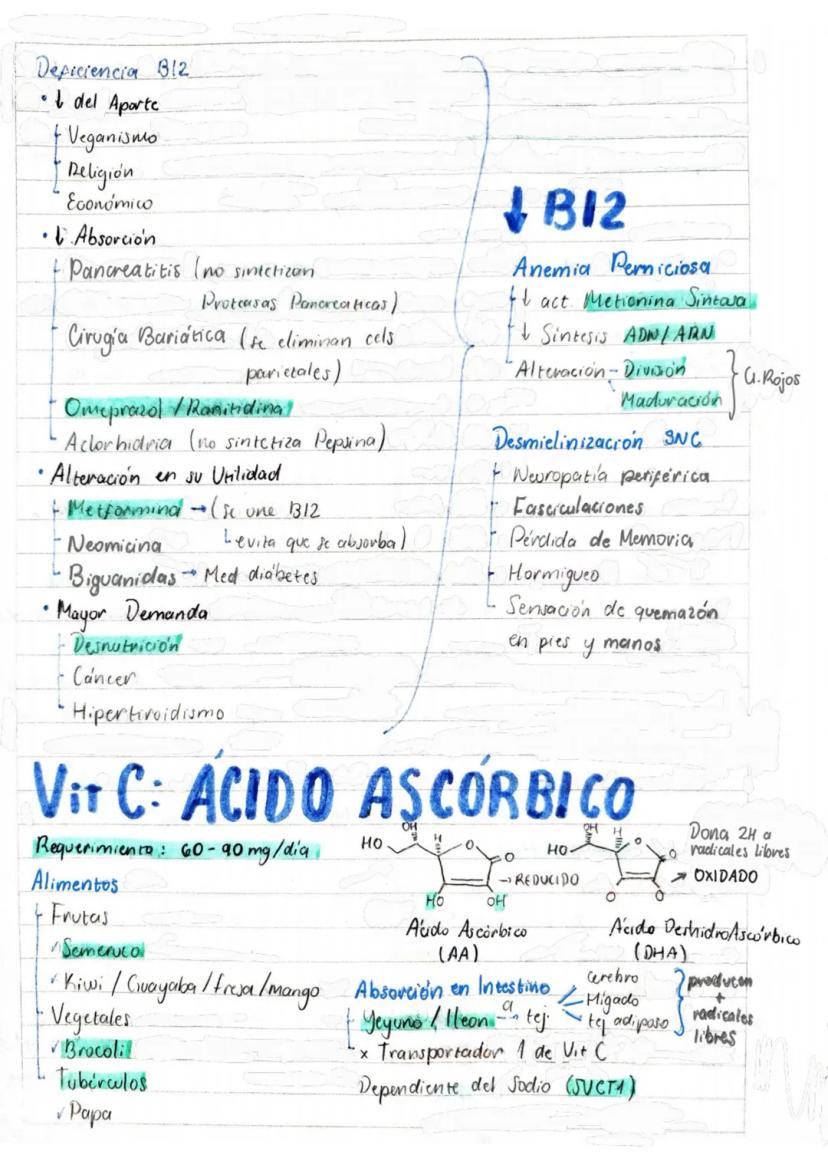 Deficiencia B12
• ↓ del Aporte
Veganismo
Religión
Económico
• ↓ Absorción
Pancreatitis (no sintetizan
Proteasas Pancreaticas)
Cirugía Bariática (se eliminan cels
parietales)
Omeprazol / Ranitidina
Aclorhidria (no sintetiza Pepsina)
• Alteración en su Utilidad
Metformina → (se une B12
Neomicina
evita que se absorba)
Biguanidas → Med diabetes
• Mayor Demanda
Desnutrición
Cáncer
Hipertiroidismo
↓ B12
Anemia Perniciosa
↓ act Metionina Sintasa
↓ Síntesis ADN/ARN
Alteración - División
Maduración
G. Rojos
Desmielinización SNC
Neuropatía periférica
Fasciculaciones
Pérdida de Memoria
Hormigueo
Sensación de quemazón
en pies y manos
Vit C: ÁCIDO ASCÓRBICO
Requerimiento: 60-90 mg/día
Alimentos
Frutas
✓ Semeruco
✓ Kiwi / Guayaba / fresa / mango
Vegetales
✓ Brocoli
Tubérculos
✓ Papa
OH
HO
H
O
O
HO
OH
→ REDUCIDO
Ácido Ascórbico
(AA)
OH
HO
H
O
O
O
O
Dona 2H a
radicales libres
→ OXIDADO
Ácido DeshidroAscórbico
(DHA)
Absorción en Intestino
Yeyuno / Ileon → a tej.
Cerebro
Hígado
tej adiposo
producen
+
radicales
libres
x Transportador 1 de Vit C
Dependiente del Sodio (SVCT1)